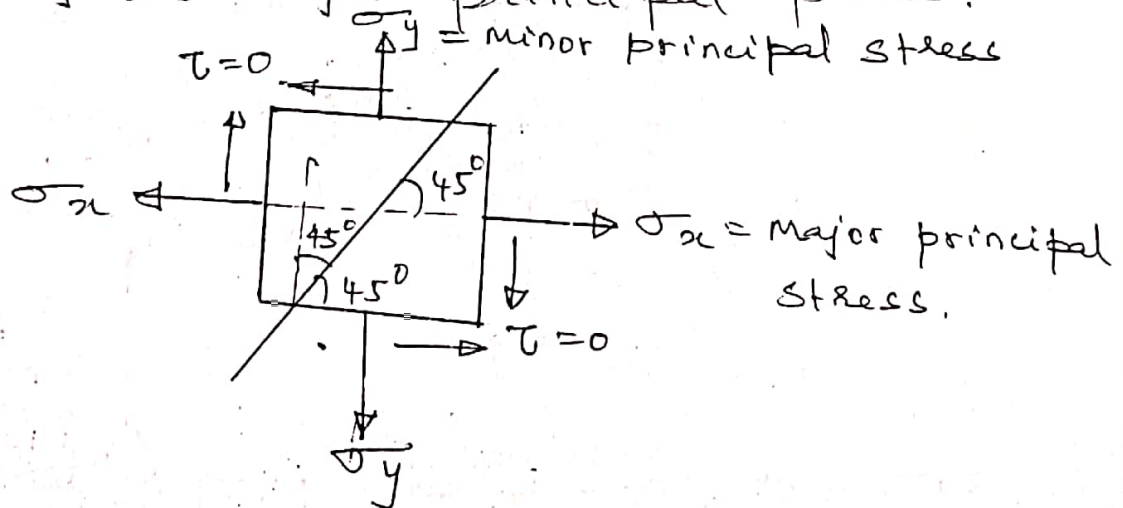 σy = minor principal stress
τ=0
45°
σx
σx = Major principal
stress.
45°
45°
τ=0
σy